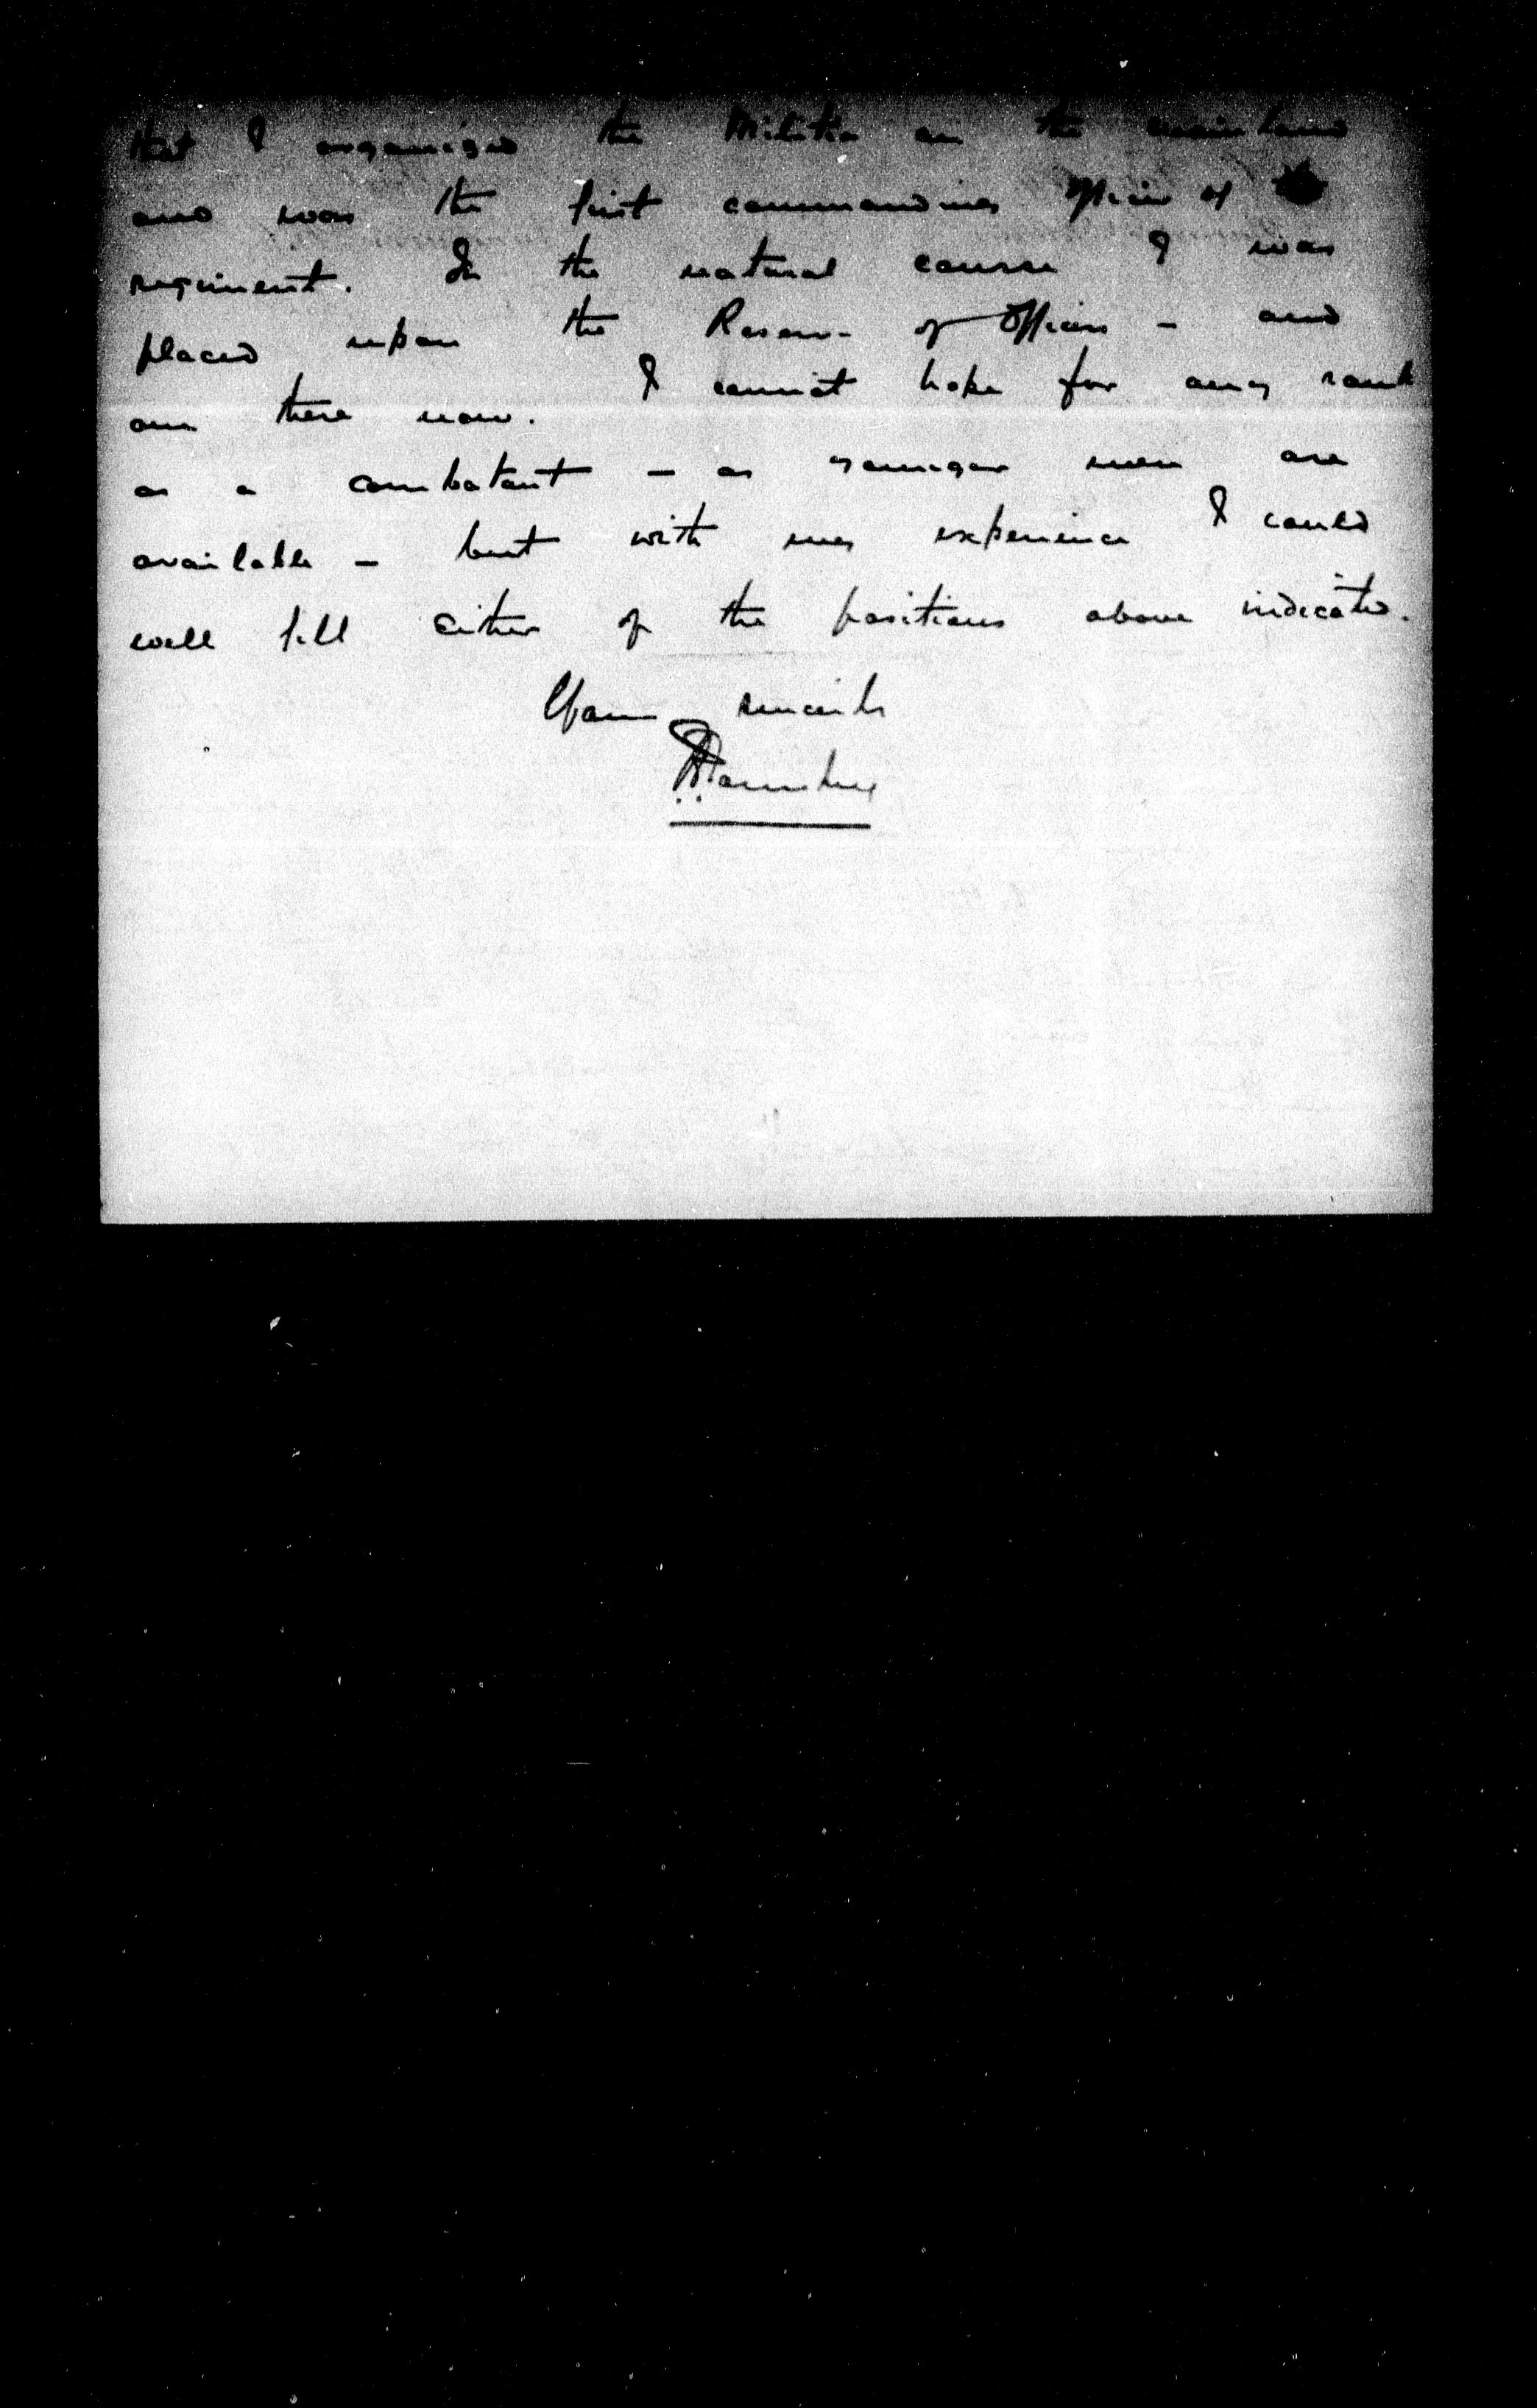 that I organised the Militia on the mainland
and was the first commanding officer of the
regiment. In the natural course I was
placed upon the Reserve of Officers - and
am there now. I cannot hope for any rank
as a combatant - as younger men are
available - but with my experience I could
well fill either of the positions above indicated.
Yours sincerely